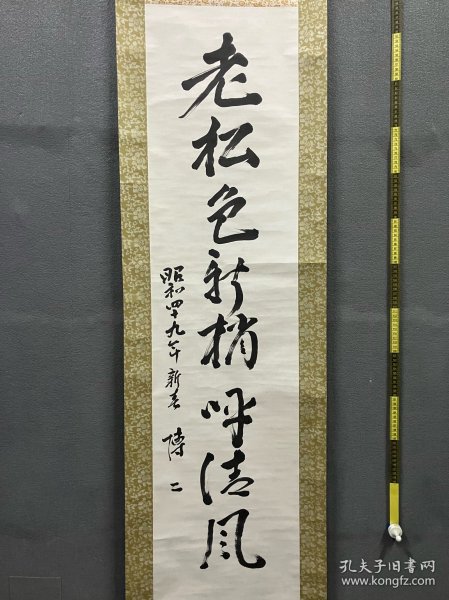 老松色新梢呼清風
昭和四十九年新春 博二
孔夫子旧书网
www.kongfz.com